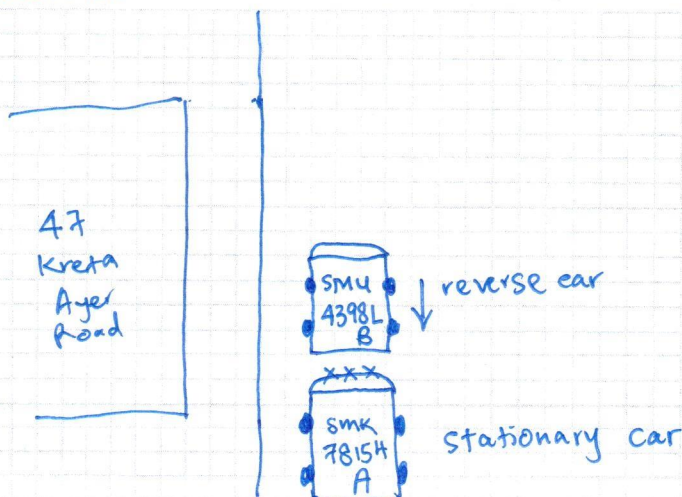 47
Kreta
Ayer
Road
SMU
4398L
B
reverse car
xxx
SMK
7815H
A
stationary car